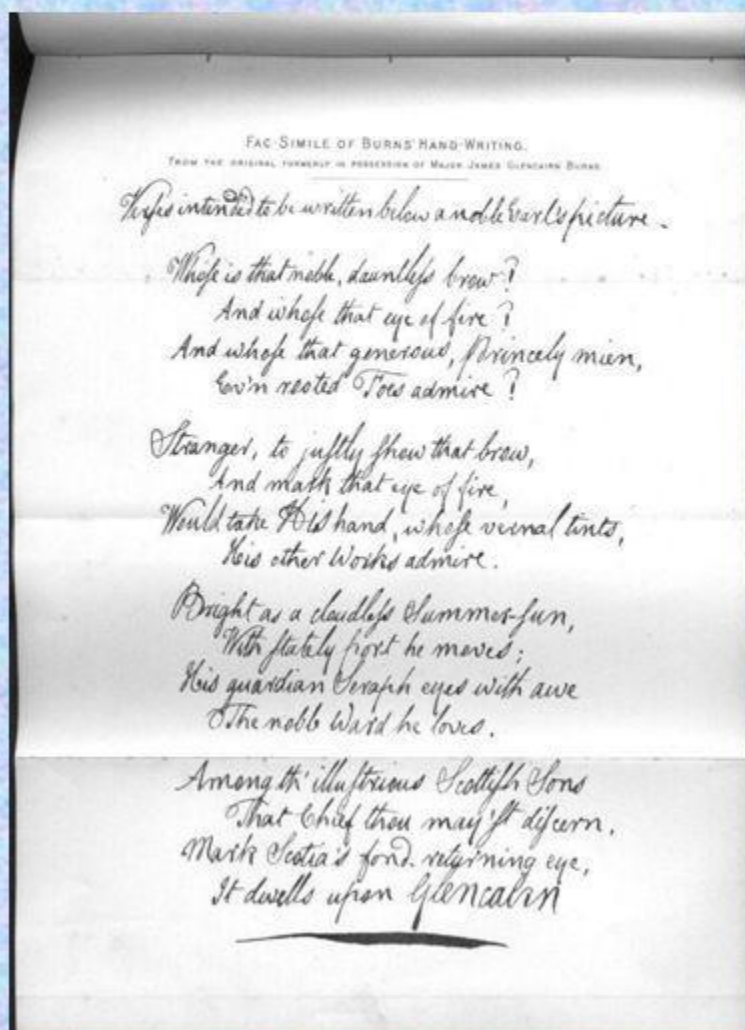 FAC-SIMILE OF BURNS' HAND-WRITING.
FROM THE ORIGINAL FORMERLY IN POSSESSION OF MAJOR JAMES GLENCAIRN BURNS
Verſes intended to be written below a noble Earl's picture.
Whoſe is that noble, dauntleſs brow?
And whoſe that eye of fire?
And whoſe that generous, Princely mien,
Ev'n rooted Foes admire?
Stranger, to juſtly ſhew that brow,
And mark that eye of fire,
Would take His hand, whoſe vernal tints,
His other Works admire.
Bright as a cloudleſs Summer-ſun,
With ſtately port he moves;
His guardian Seraph eyes with awe
The noble Ward he loves.
Among th' illuſtrious Scottiſh Sons
That Chief thou may'ſt diſcern,
Mark Scotia's fond-returning eye,
It dwells upon Glencairn